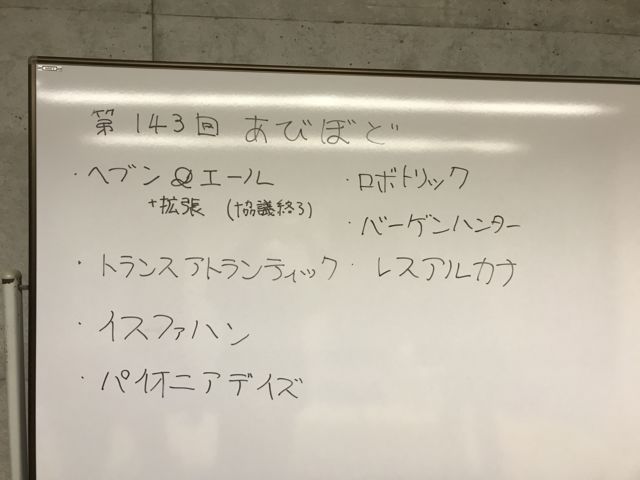 第143回 あびぼど
・ヘブン&エール
+拡張 (協議終了)
・トランスアトランティック
・イスファハン
・パイオニアデイズ
・ロボトリック
・バーゲンハンター
・レスアルカナ